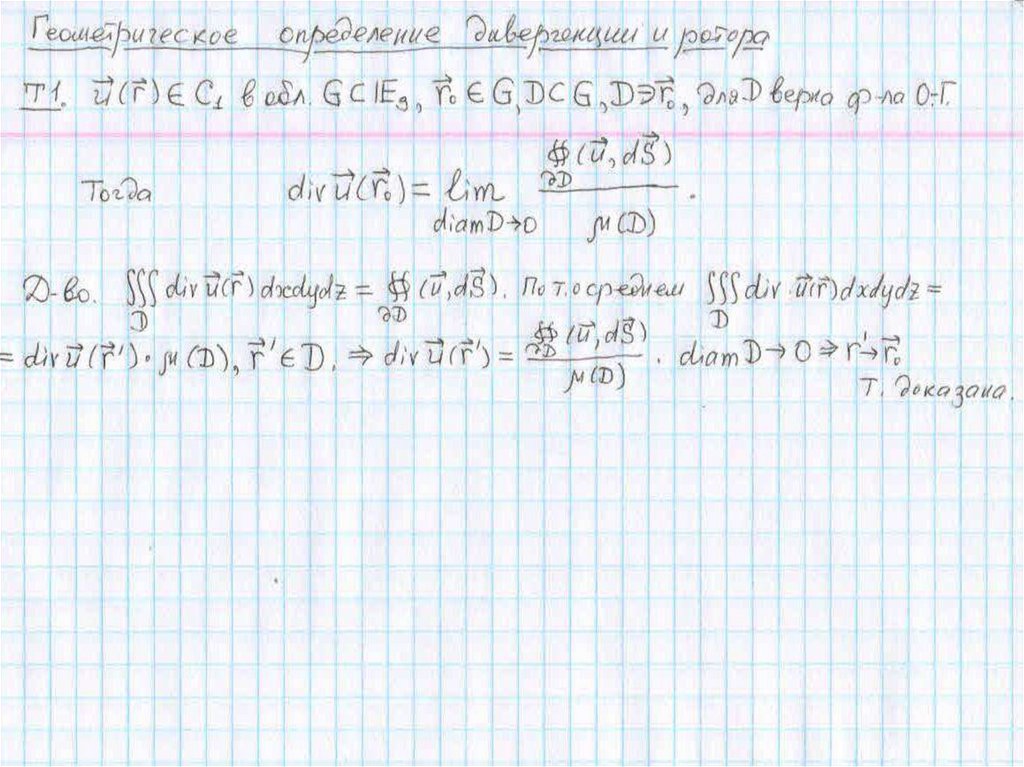 Геометрическое определение дивергенции и ротора
Т1. u⃗(r⃗) ∈ C₁ в обл. G ⊂ E₃, r⃗₀ ∈ G, D ⊂ G, D ∋ r⃗₀, для D верна ф-ла О.-Г.
Тогда div u⃗(r⃗₀) = lim_{diam D → 0} ∯_{∂D} (u⃗, dS⃗) / μ(D) .
Д-во. ∭_D div u⃗(r⃗) dxdydz = ∯_{∂D} (u⃗, dS⃗). По т. о среднем ∭_D div u⃗(r⃗) dxdydz =
= div u⃗(r⃗′) · μ(D), r⃗′ ∈ D. ⇒ div u⃗(r⃗′) = ∯_{∂D} (u⃗, dS⃗) / μ(D) . diam D → 0 ⇒ r′ → r⃗₀
Т. доказана.